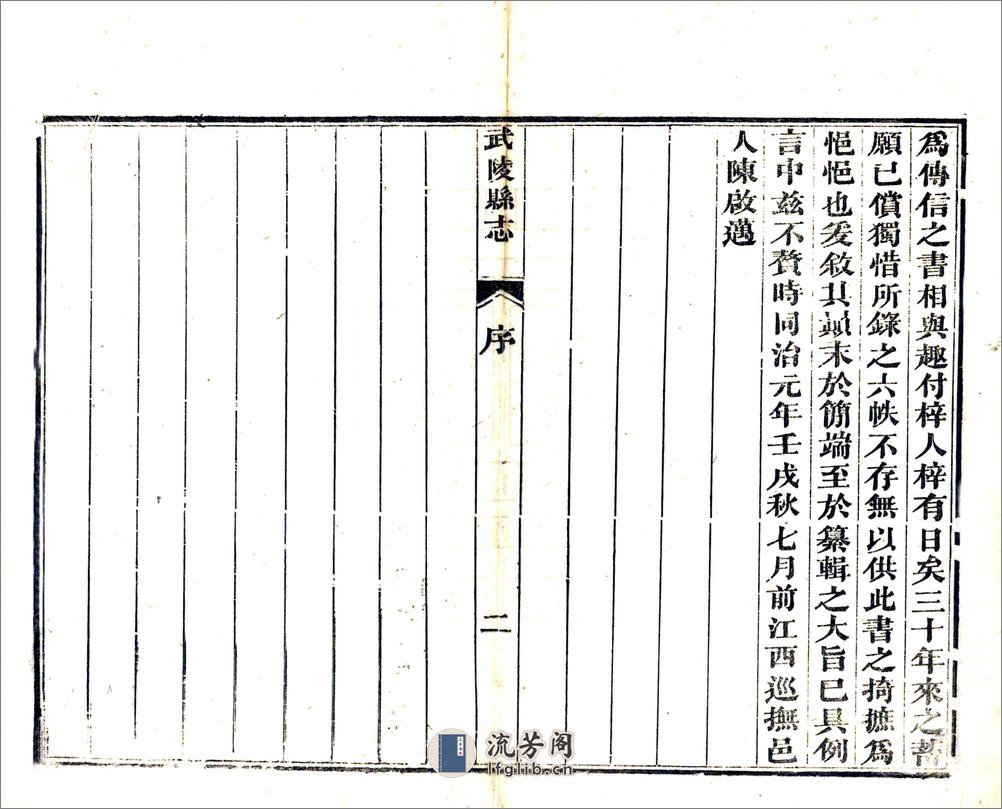 爲傳信之書相與趣付梓人梓有日矣三十年來之舊
願已償獨惜所錄之六帙不存無以供此書之掎摭爲
悒悒也爰敘其顚末於簡端至於纂輯之大旨已具例
言中兹不贅時同治元年壬戌秋七月前江西巡撫邑
人陳啟邁
武陵縣志
序
二
流芳阁
lfglib.cn